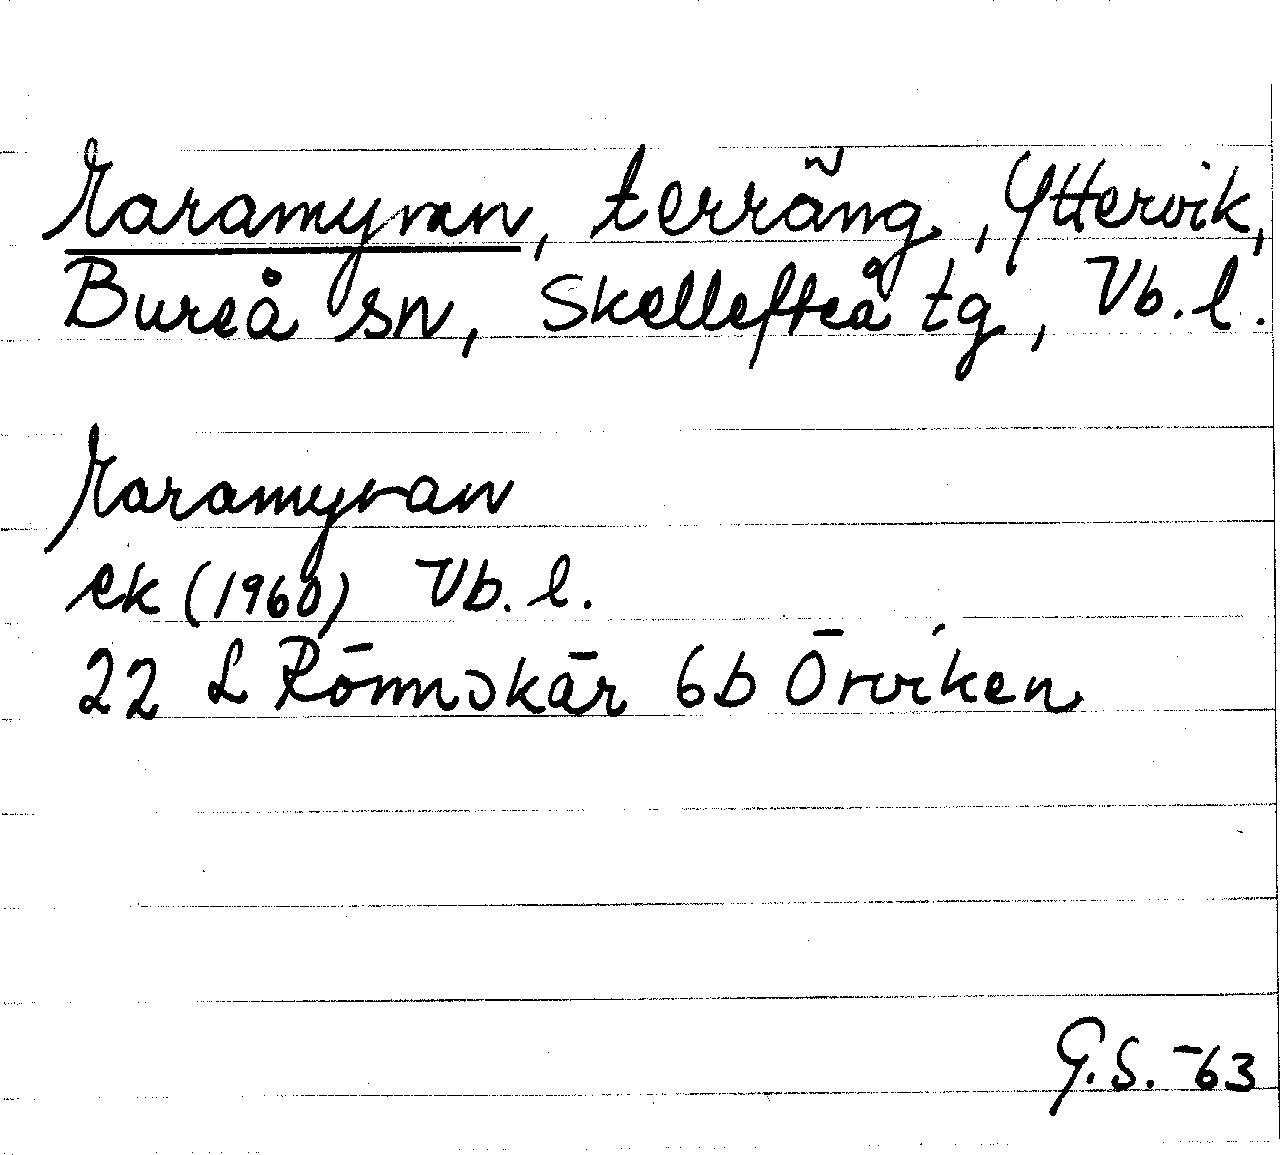 Karamyran, terräng, Yttervik,
Bureå sn, Skellefteå tg, Vb. l.
Karamyran
ek (1960) Vb. l.
22 L Rönnskär 6b Örviken
G.S. -63